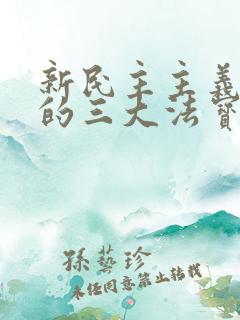 新民主主義
的三大法寶
孫藝珍
未经同意禁止转载